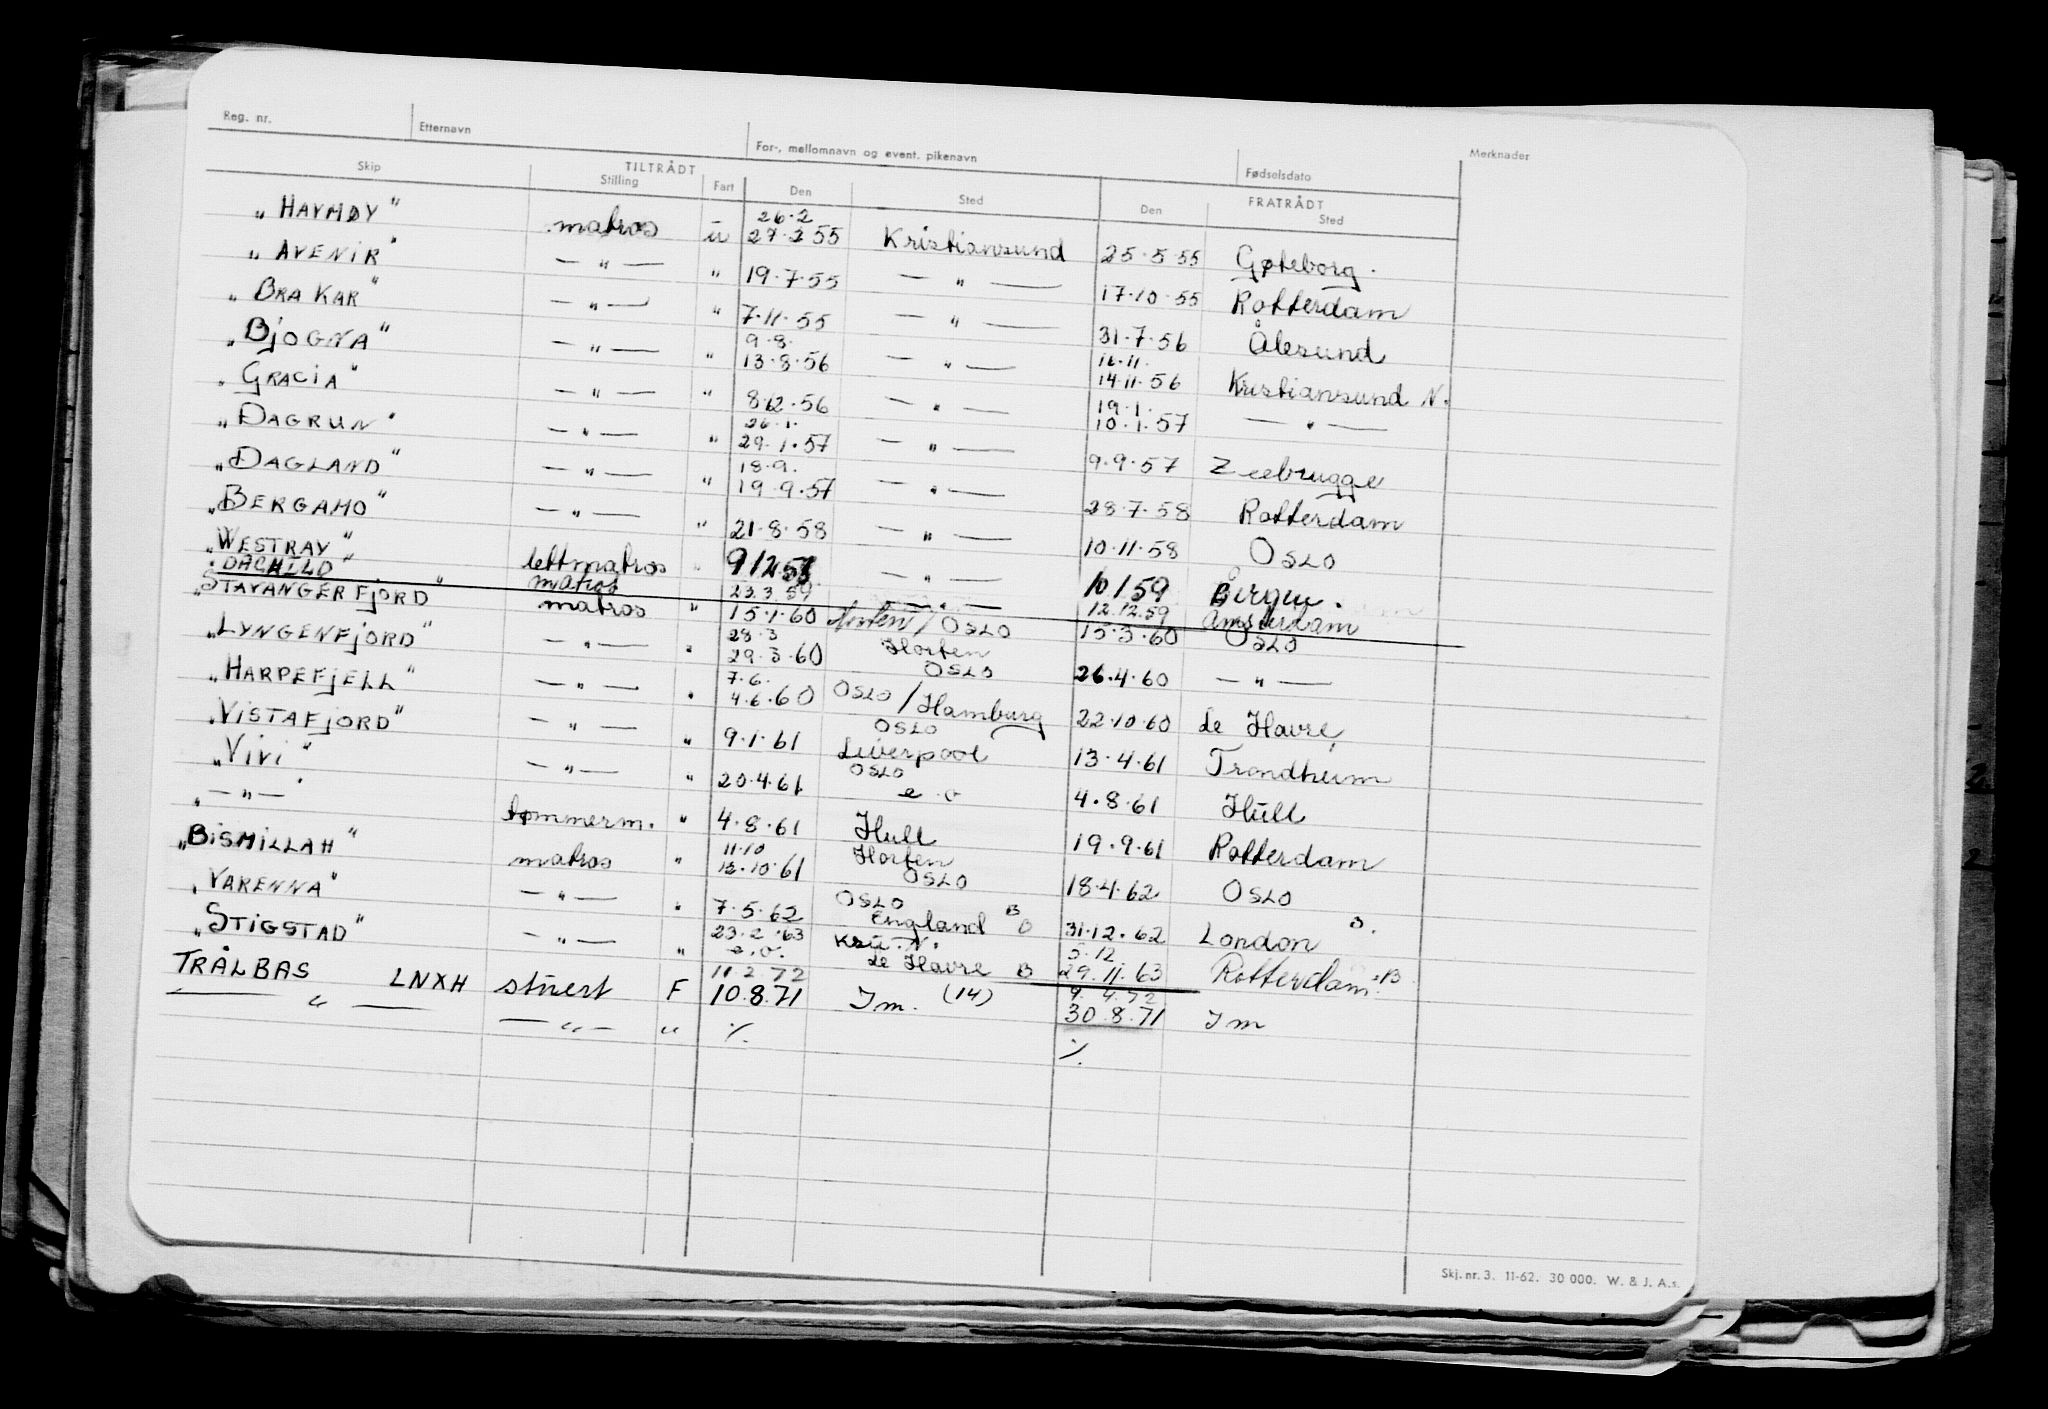 Reg. nr. Etternavn For-, mellomnavn og event. pikenavn Fødselsdato Merknader
Skip TILTRÅDT Stilling Fart Den Sted Den FRATRÅDT Sted
„HAVMØY" matros u 26.2 27.2 55 Kristiansund 25.5.55 Gøteborg.
„AVENIR" — " — " 19.7.55 — " — 17.10.55 Rotterdam
„BRA KAR" — " — " 7.11.55 — " — 31.7.56 Ålesund
„BJOGNA" — " — " 9.8. 13.8.56 — " — 16.11. 14.11.56 Kristiansund N.
„GRACIA" — " — " 8.12.56 — " — 19.1. 10.1.57 — " —
„DAGRUN" — " — " 26.1. 29.1.57 — " — 9.9.57 Zeebrugge
„DAGLAND" — " — " 18.9. 19.9.57 — " — 28.7.58 Rotterdam
„BERGAMO" — " — " 21.8.58 — " — 10.11.58 OSLO
„WESTRAY" lettmatros " 9 12 58 — " — 10 1 59 Bergen.
"DAGHILD" matros 23.3.59 — " — 12.12.59 Amsterdam
„STAVANGERFJORD" matros " 15.1.60 Horten / OSLO 15.3.60 OSLO
„LYNGENFJORD" — " — " 28.3 29.3.60 Horten OSLO 26.4.60 — " —
„HARPEFJELL" — " — " 7.6. 4.6.60 OSLO / Hamburg 22.10.60 Le Havre
„VISTAFJORD" — " — " 9.1.61 OSLO Liverpool 13.4.61 Trondheim
„VIVI" — " — " 20.4.61 OSLO e.o 4.8.61 Hull
„ — " — " tømmerm. " 4.8.61 Hull 19.9.61 Rotterdam
„BISMILLAH" matros " 11.10 12.10.61 Horten OSLO 18.4.62 OSLO
„VARENNA" — " — " 7.5.62 OSLO England B O 31.12.62 London B.
„STIGSTAD" — " — " 23.2.63 e.o. Ksu. N. Le Havre B 5.12. 29.11.63 Rotterdam B
TRÅLBAS LNXH stuert F 11.2.72 10.8.71 Im. (14) 9.4.72 30.8.71 Im
— " — — " — " ./. ./.
Skj. nr. 3. 11-62. 30 000. W. & J. A.s.